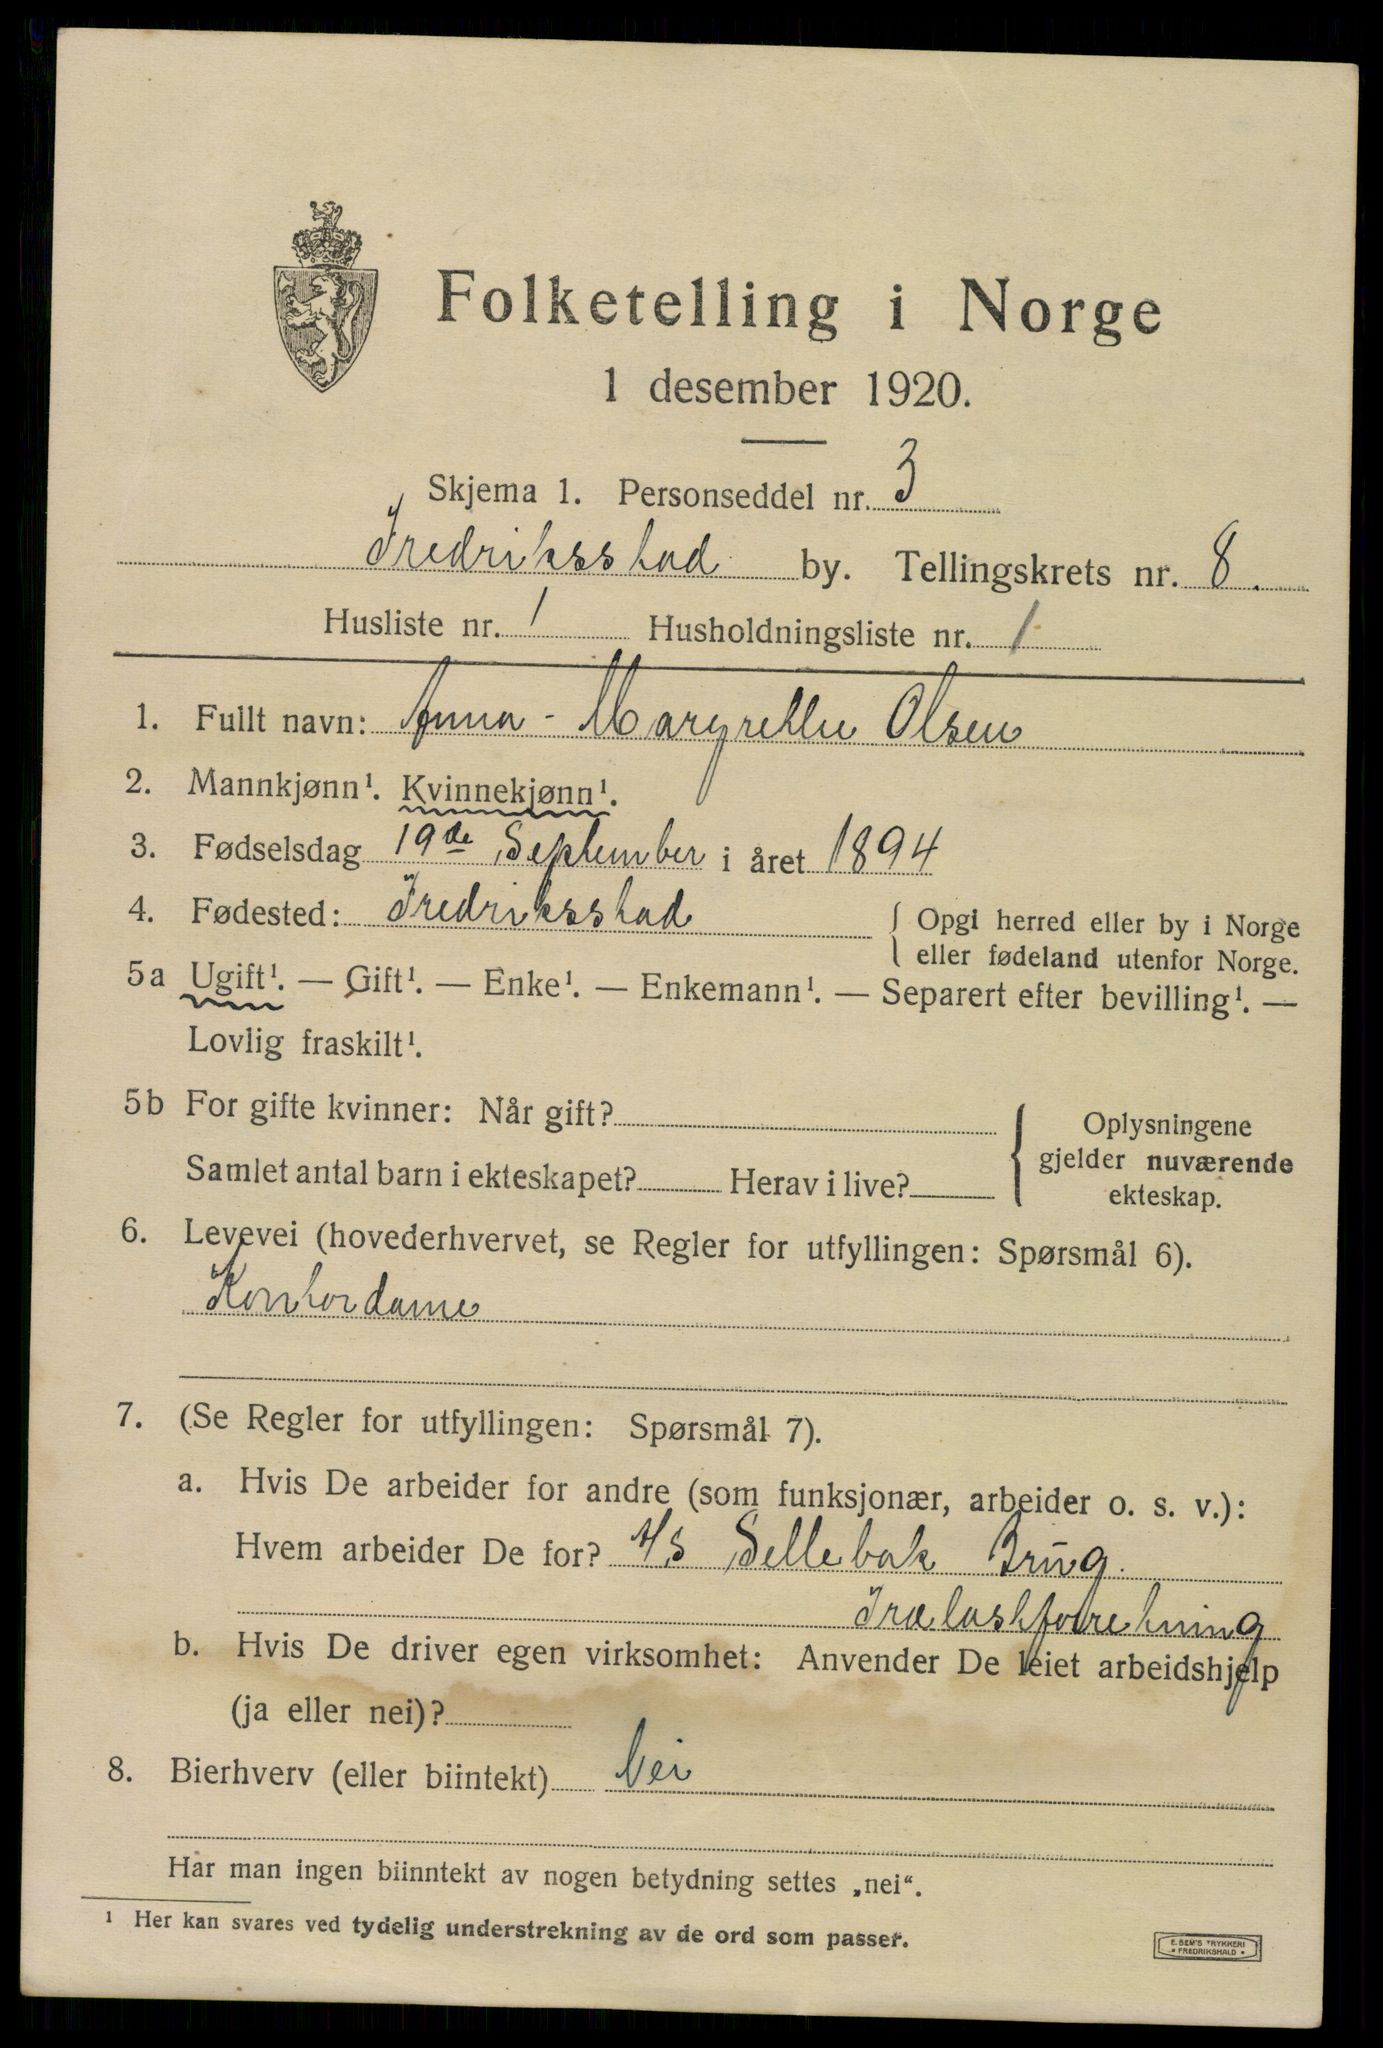 Folketelling i Norge
1 desember 1920.
Skjema 1. Personseddel nr. 3
Fredriksstad by. Tellingskrets nr. 8.
Husliste nr. 1 Husholdningsliste nr. 1
1. Fullt navn: Anna - Margrethe Olsen
2. Mannkjønn¹. Kvinnekjønn¹.
3. Fødselsdag 19de September i året 1894
4. Fødested: Fredriksstad { Opgi herred eller by i Norge
eller fødeland utenfor Norge.
5a Ugift¹. — Gift¹. — Enke¹. — Enkemann¹. — Separert efter bevilling¹. —
Lovlig fraskilt¹.
5b For gifte kvinner: Når gift? { Oplysningene
gjelder nuværende
Samlet antal barn i ekteskapet? Herav i live?
ekteskap.
6. Levevei (hovederhvervet, se Regler for utfyllingen: Spørsmål 6).
Kontordame
7. (Se Regler for utfyllingen: Spørsmål 7).
a. Hvis De arbeider for andre (som funksjonær, arbeider o. s. v.):
Hvem arbeider De for? A/S Sellebak Brug.
Trælastforretning
b. Hvis De driver egen virksomhet: Anvender De leiet arbeidshjelp
(ja eller nei)?
8. Bierhverv (eller biintekt) Nei
Har man ingen biinntekt av nogen betydning settes „nei“.
¹ Her kan svares ved tydelig understrekning av de ord som passer.
E. SEM'S TRYKKERI
FREDRIKSHALD